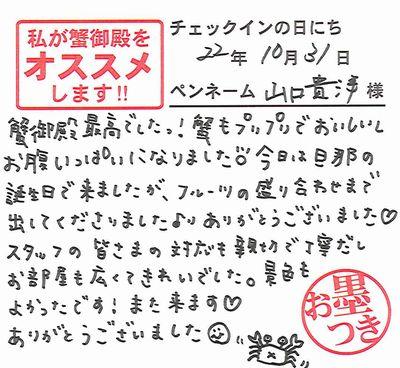 私が蟹御殿を
オススメ
します!!
チェックインの日にち
22年 10月 31日
ペンネーム 山口貴浄 様
蟹御殿最高でしたっ!蟹もプリプリでおいしいし
お腹いっぱいになりました♡今日は旦那の
誕生日で来ましたが、フルーツの盛り合わせまで
出してくださりました♪りありがとうございました♡
スタッフの皆さまの対応も親切で丁寧だし
お部屋も広くてきれいでした。景色も
よかったです!また来ます♡
ありがとうございました
お墨つき